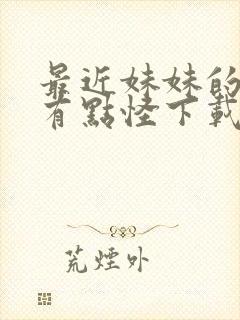 最近妹妹的
有點怪下載
荒煙外